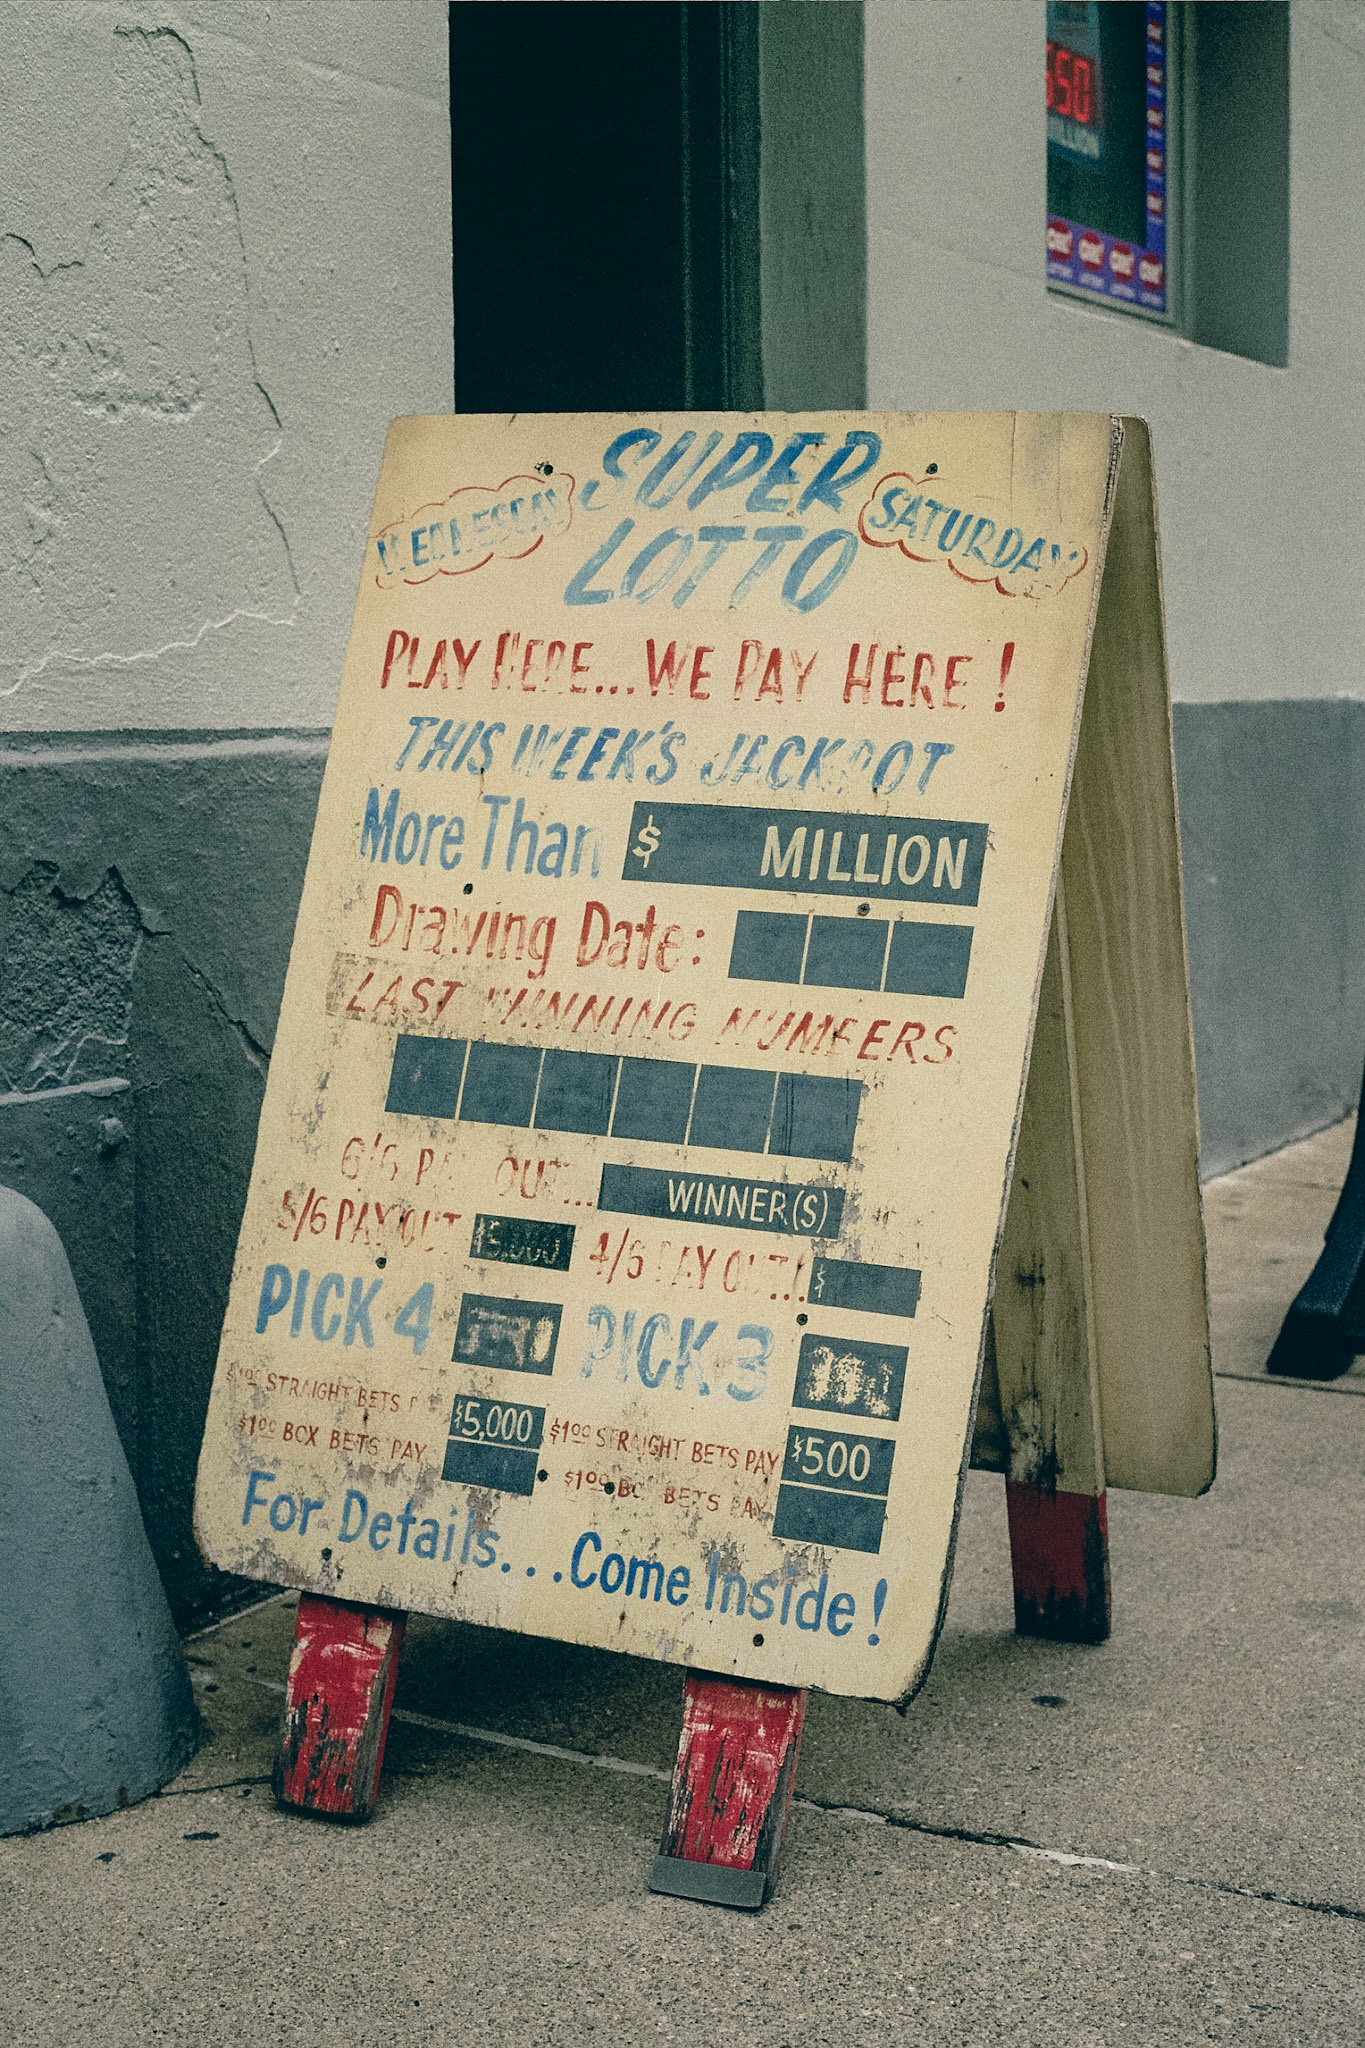 SUPER
LOTTO
WEDNESDAY
SATURDAY
PLAY HERE...WE PAY HERE!
THIS WEEK'S JACKPOT
More Than $ MILLION
Drawing Date:
LAST WINNING NUMBERS
6/6 PAY OUT... WINNER(S)
5/6 PAY OUT $5,000 4/6 PAY OUT... $
PICK 4 PICK 3
$1.00 STRAIGHT BETS $5,000 $1.00 STRAIGHT BETS PAY $500
$1.00 BOX BETS PAY $1.00 BOX BETS PAY
For Details...Come Inside!